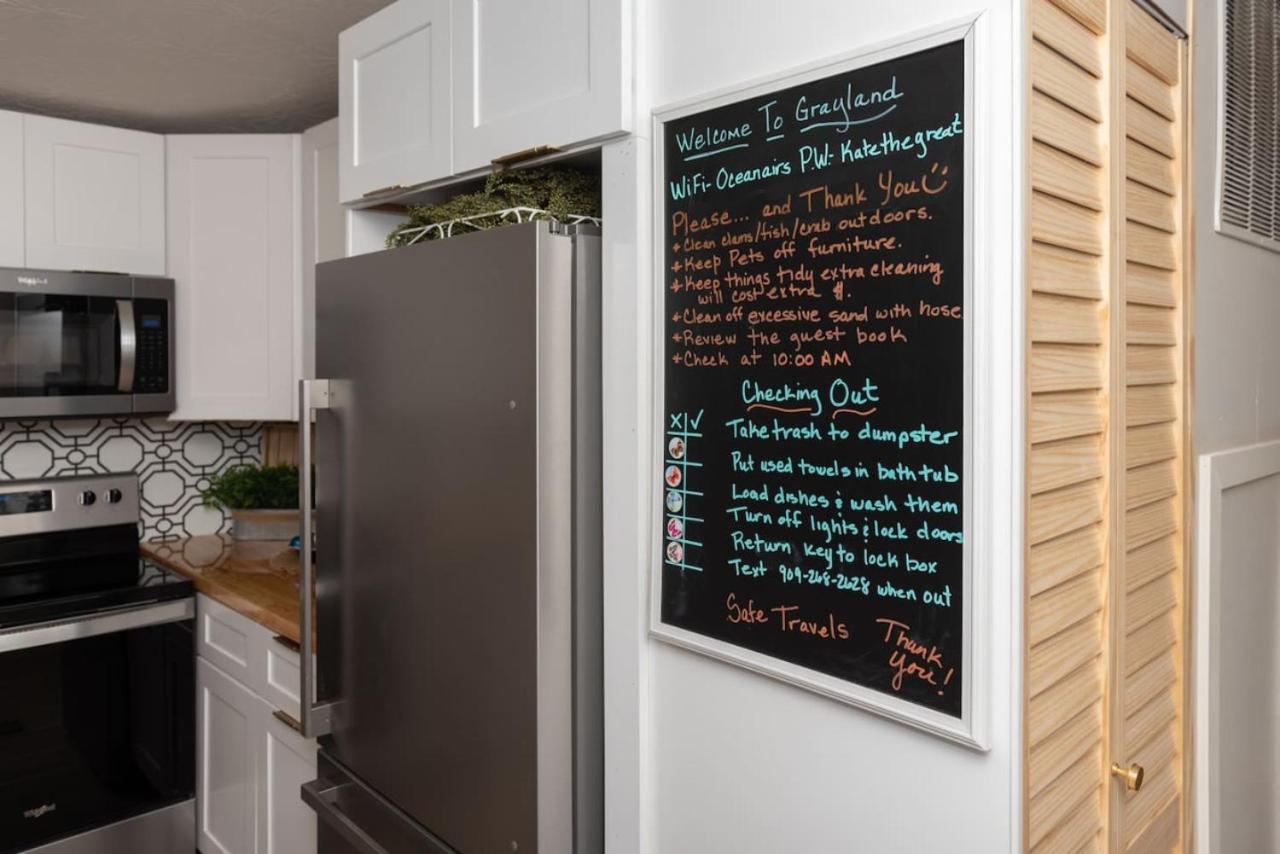 Welcome To Grayland
WiFi- Oceanairs P.W.- Katethegreat
Please... and Thank You
* Clean clams/fish/crab outdoors.
* Keep Pets off furniture.
* Keep things tidy extra cleaning
will cost extra $.
* Clean off excessive sand with hose
* Review the guest book
* Check at 10:00 AM
Checking Out
X ✓
Take trash to dumpster
Put used towels in bath tub
Load dishes & wash them
Turn off lights & lock doors
Return key to lock box
Text 909-268-2628 when out
Safe Travels
Thank
You!
Whirlpool
Whirlpool